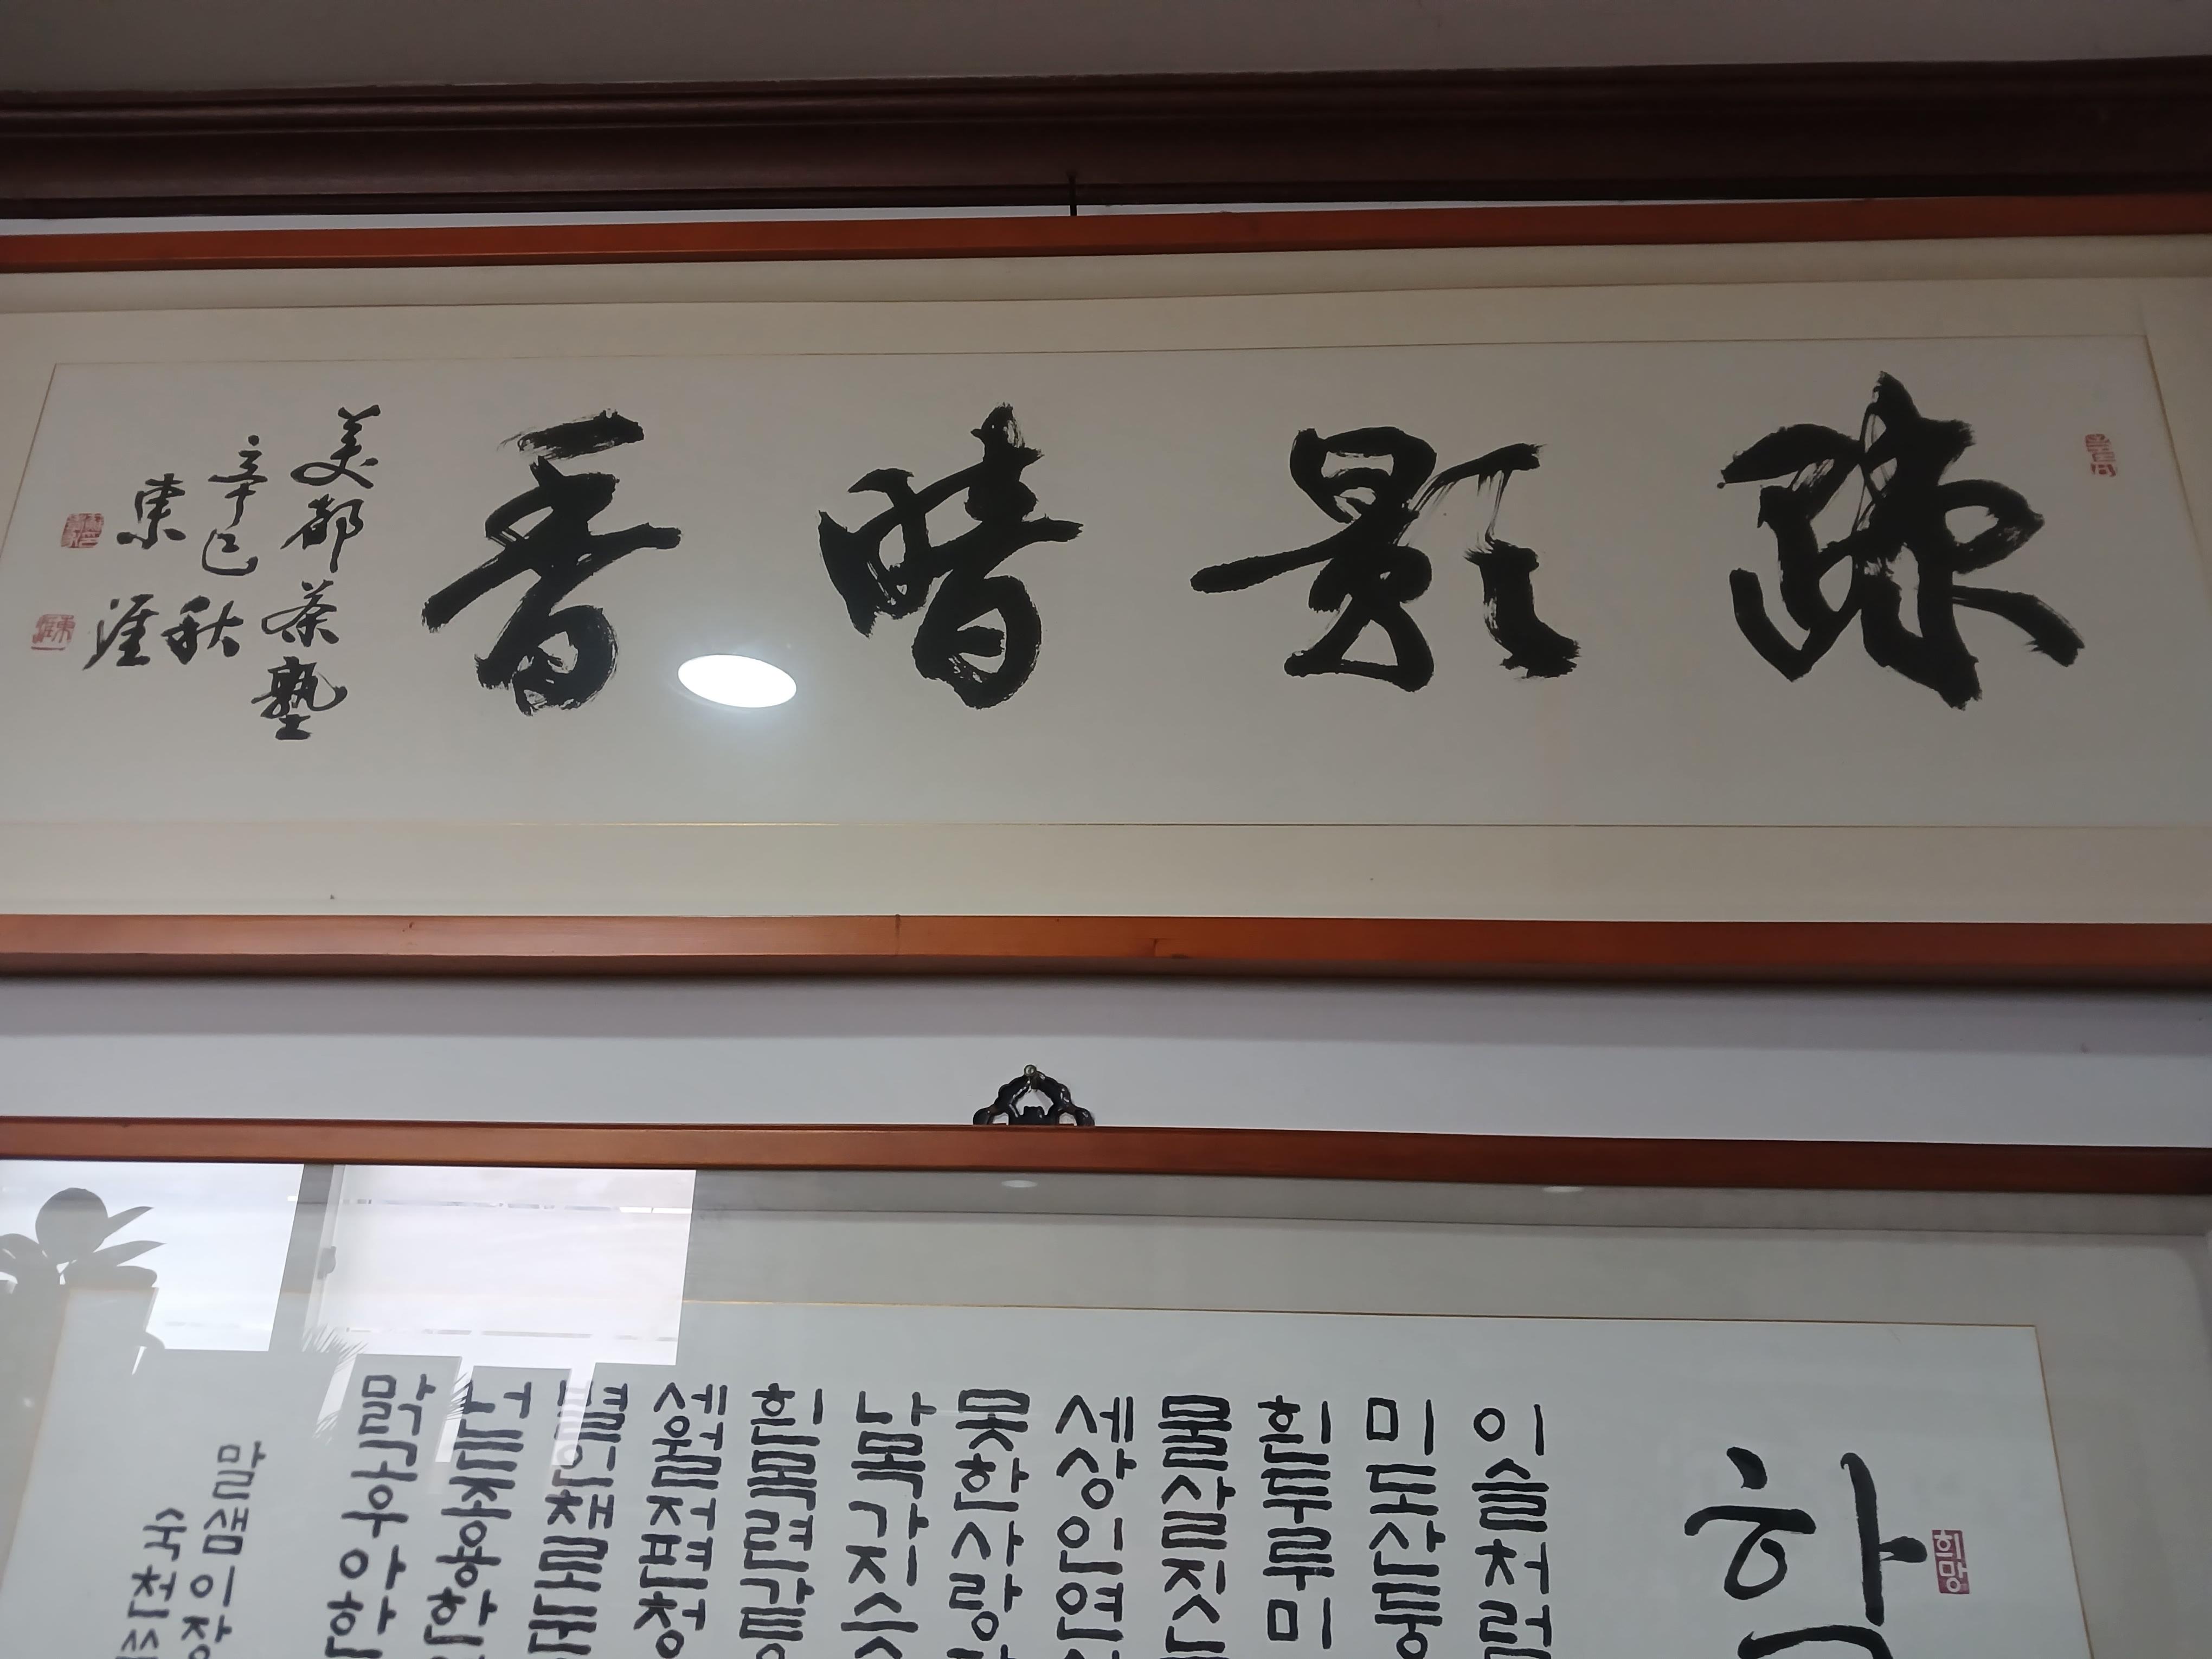 疎影暗香
美都茶塾
辛巳秋
東涯
희망
하
이슬처럼
미도산둥
흰두루미
물살짓
세상인연
못한사랑
나목가지
흰목련같
세월저편정
별인채로
넌조용한
맑고우아한
말샘이장
숙천